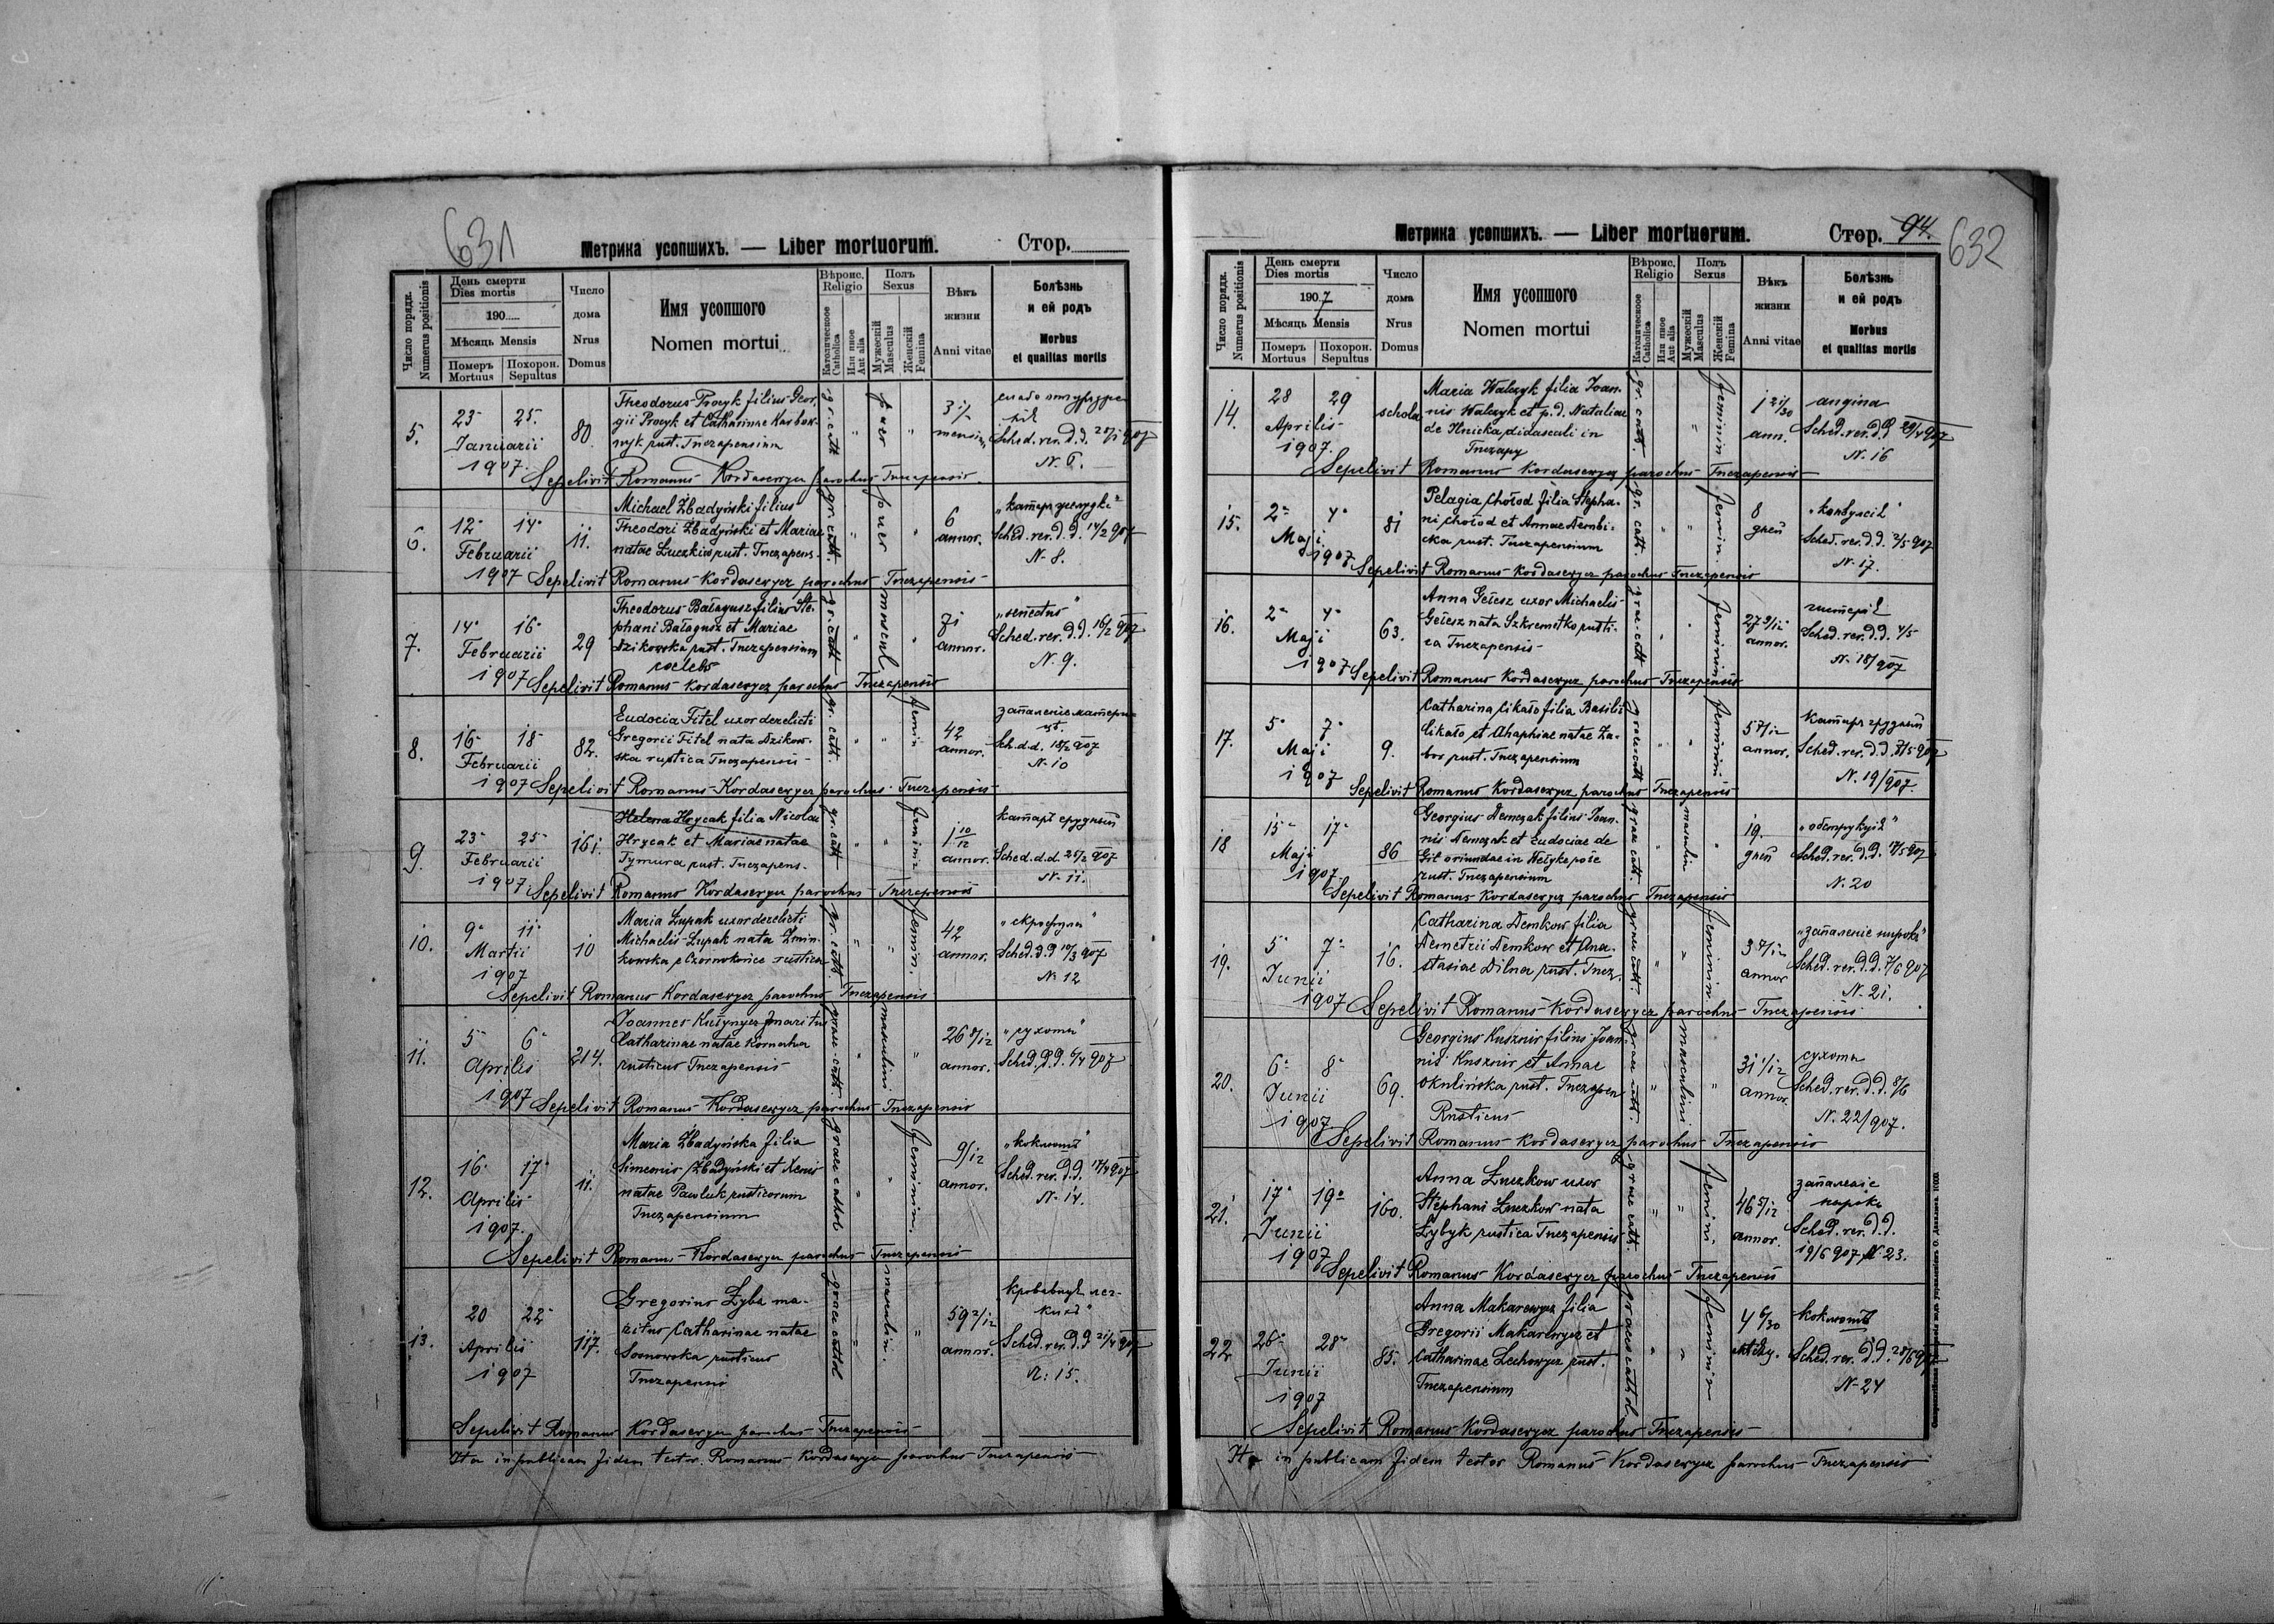 631
Метрика усопшихъ. — Liber mortuorum.
Стор.
Число порядк.
Numerus positionis
День смерти
Dies mortis
190
Мѣсяць Mensis
Померъ
Mortuus
Похорон.
Sepultus
Число
дома
Nrus
Domus
Имя усопшого
Nomen mortui
Вѣроис.
Religio
Католическое
Catholica
Или иное
Aut alia
Полъ
Sexus
Мужескій
Masculus
Женскій
Femina
Вѣкъ
жизни
Anni vitae
Болѣзнь
и ей родъ
Morbus
et qualitas mortis
5.
23 25
Januarii
1907.
80
Theodorus Procyk filius Geor.
gii Procyk et Catharinae Karbow-
nyk rust. Tnezapensium
gr. cath
puer
mensium
Sched. rer. d. d. 25/1 907
N. 6.
Sepelivit Romanus Kordasewycz parochus Tnezapensis
6.
12 14
Februarii
1907
11.
Michael Zbadyński filius
Theodori Zbadyński et Mariae
natae Łuczkiw rust. Tnezapens.
gr. cath.
puer
6
annor.
"катар желудка"
Sched. rer. d. d. 14/2 907
N. 8.
Sepelivit Romanus Kordasewycz parochus Tnezapensis
7.
14 16
Februarii
1907
29
Theodorus Bałagusz filius Ste-
phani Bałagusz et Mariae
Dzikowska rust. Tnezapensium
coelebs
gr. cath
mascul.
71
annor.
"senectus"
Sched. rer. d. d. 16/2 907
N. 9.
Sepelivit Romanus Kordasewycz parochus Tnezapensis
8.
16 18
Februarii
1907
82.
Eudocia Titel uxor derelicti
Gregorii Titel nata Dzikow-
ska rustica Tnezapensis
gr. cath.
femin.
42
annor.
запаленіе матери-
цѣ.
Sch. d. d. 18/2 907
N. 10
Sepelivit Romanus Kordasewycz parochus Tnezapensis
9.
23 25
Februarii
1907
161.
Helena Hrycak filia Nicolai
Hrycak et Mariae natae
Tymura rust. Tnezapens.
gr. cath
femini
1 10/12
annor.
катаръ грудный
Sched. d. d. 25/2 907
N. 11.
Sepelivit Romanus Kordasewycz parochus Tnezapensis
10.
9 11
Martii
1907
10
Maria Łupak uxor derelicti
Michaelis Łupak nata Zmin-
kowska e Czornokońce rustica
gr. cath
femin.
42
annor.
"скрофулы"
Sched. d. d. 11/3 907
N. 12
Sepelivit Romanus Kordasewycz parochus Tnezapensis
11.
5 6
Aprilis
1907
214.
Joannes Kułynycz maritus
Catharinae natae Kornaha
rusticus Tnezapensis
graec. cath
masculini
26 8/12
annor.
"сухоты"
Sched. d. d. 6/4 907
Sepelivit Romanus Kordasewycz parochus Tnezapensis
12.
16 17
Aprilis
1907.
11.
Maria Zbadyńska filia
Simeonis Zbadyński et Xenis
natae Pawluk rusticorum
Tnezapensium
graec cathol
feminin.
9/12
annor.
"коклюшъ"
Sched. rer. d. d. 17/4 907
N. 14.
Sepelivit Romanus Kordasewycz parochus Tnezapensis
13.
20 22
Aprilis
1907
117.
Gregorius Zyba ma-
ritus Catharinae natae
Sosnowska rusticus
Tnezapensis
graec cathol
masculin.
59 2/12
annor.
Sched. rer. d. d. 21/4 907
N: 15.
Sepelivit Romanus Kordasewycz parochus Tnezapensis
Ita in publicam fidem testor. Romanus Kordasewycz parochus Tnezapensis
632
Метрика усопшихъ. — Liber mortuorum.
Стор. 94.
Число порядк.
Numerus positionis
День смерти
Dies mortis
1907
Мѣсяць Mensis
Померъ
Mortuus
Похорон.
Sepultus
Число
дома
Nrus
Domus
Имя усопшого
Nomen mortui
Вѣроис.
Religio
Католическое
Catholica
Или иное
Aut alia
Полъ
Sexus
Мужескій
Masculus
Женскій
Femina
Вѣкъ
жизни
Anni vitae
Болѣзнь
и ей родъ
Morbus
et qualitas mortis
14.
28 29
Aprilis
1907.
schola
Maria Walczyk filia Joan-
nis Walczyk et p. d. Nataliae
de Hnicka, didascali in
Tnezapy
gr. cath.
feminin
1 21/30
ann.
angina
Sched. rer. d. d. 29/4 907
N. 16
Sepelivit Romanus Kordasewycz parochus Tnezapensis
15.
2 4
Maji
1907
81
Pelagia Chołod filia Stepha-
ni Chołod et Annae Dembi-
cka rust. Tnezapensium
gr. cath.
feminin
8
дней
"конвулсіѣ"
Sched. rer. d. d. 2/5 907
N. 17.
Sepelivit Romanus Kordasewycz parochus Tnezapensis
16.
2 4
Maji
1907
63.
Anna Geiesz uxor Michaelis
Geiesz nata Szkremetko rusti-
ca Tnezapensis
graec. cath
feminin
27 9/12
annor.
Sched. rer. d. d. 4/5
N. 18/907
Sepelivit Romanus Kordasewycz parochus Tnezapensis
17.
5 7
Maji
1907
9.
Catharina Cikało filia Basilii
Cikało et Ahaphiae natae Za-
bro rust. Tnezapensium
graec cath
feminini
5 7/12
annor.
Катаръ грудный
Sched. rer. d. d. 7/5 907
N. 19/907.
Sepelivit Romanus Kordasewycz parochus Tnezapensis
18
15 17
Maji
1907.
86
Georgius Demczak filius Joan-
nis Demczak et Eudociae de
Git oriundae in Wełykepołe
rust. Tnezapensium
graec cath.
masculin
19.
дней
"обструкція"
Sched. rer. d. d. 17/5 907
N. 20
Sepelivit Romanus Kordasewycz parochus Tnezapensis
19.
5 7
Junii
1907
16.
Catharina Demkow filia
Demetrii Demkow et Ana-
stasiae Dilna rust. Tnez.
graec cath.
feminin
annor
"запаленіе нирокъ"
Sched. rer. d. d. 7/6 907
N. 21.
Sepelivit Romanus Kordasewycz parochus Tnezapensis
20.
6 8
Junii
1907
69.
Georgius Kusznir filius Joan-
nis Kusznir et Annae
Okulińska rust. Tnezapen
Rusticus
graec cath.
masculini
31 1/12
annor.
сухоты
Sched. rer. d. d. 8/6
N. 22/907.
Sepelivit Romanus Kordasewycz parochus Tnezapensis
21.
17 19
Junii
1907
160.
Anna Łuczkow uxor
Stephani Łuczkow nata
Zybyk rustica Tnezapensis
graec cath.
feminini
46 5/12
annor.
запаленіе
нирокъ
Sched. rer. d. d.
19/6 907 N 23.
Sepelivit Romanus Kordasewycz parochus Tnezapensis
22
26 28
Junii
1907
85.
Anna Makarewycz filia
Gregorii Makarewycz et
Catharinae Lechowycz rust.
Tnezapensium
graec cathol
feminin
4 6/30
коклюшъ
Sched. rer. d. d. 28/6 907
N- 24
Sepelivit Romanus Kordasewycz parochus Tnezapensis
Ita in publicam fidem testor Romanus Kordasewycz parochus Tnezapensis